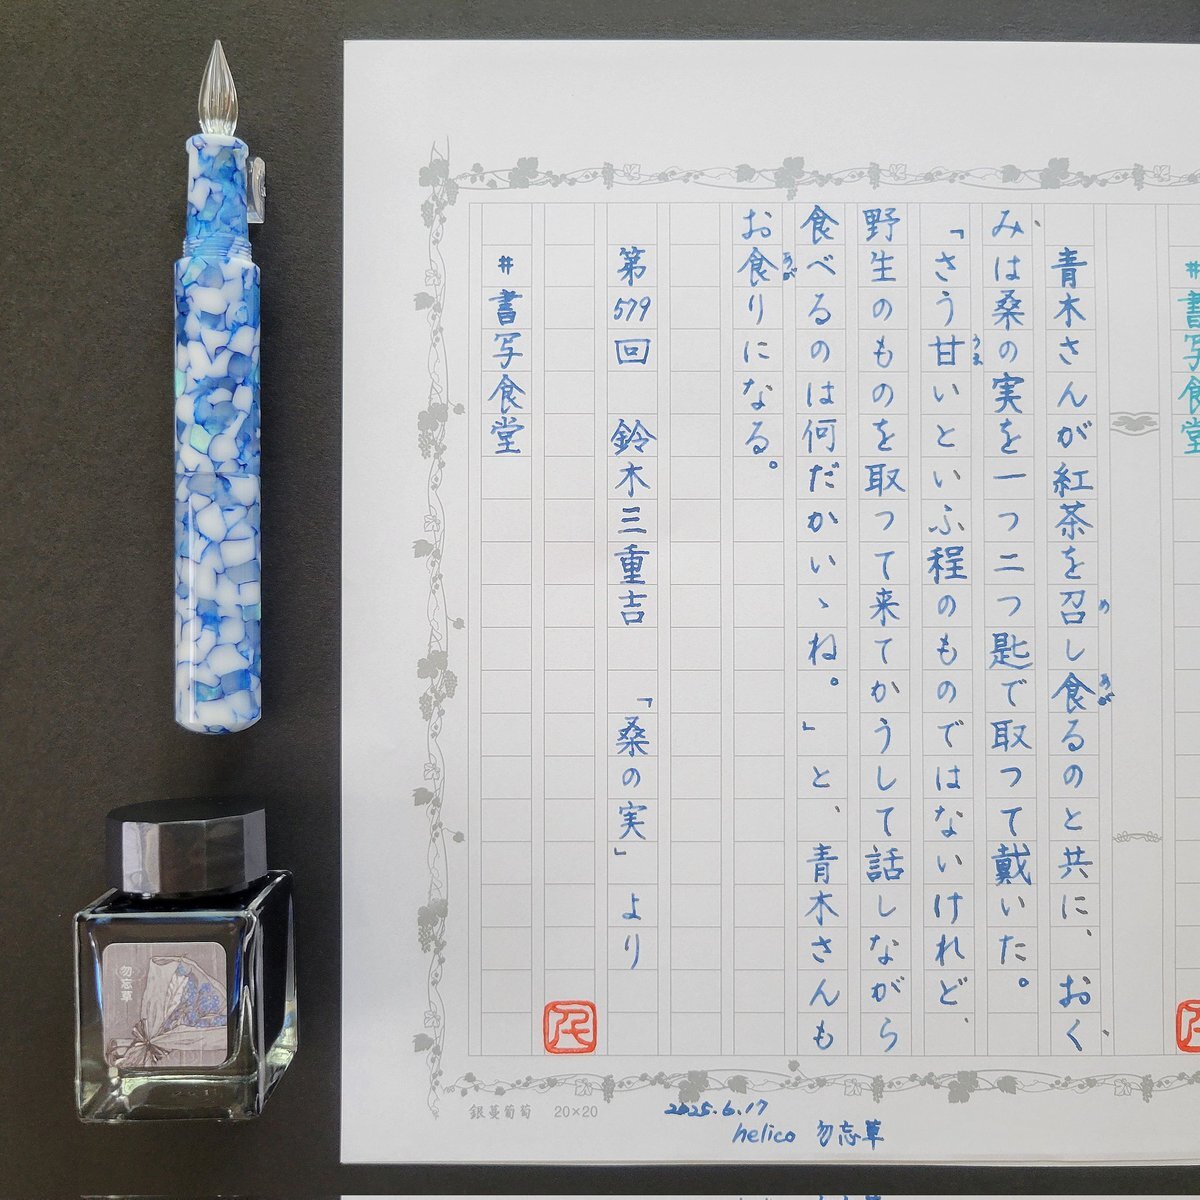 青木さんが紅茶を召し食るのと共に、おく
みは桑の実を一つ二つ匙で取つて戴いた。
「さう甘いといふ程のものではないけれど、
野生のものを取つて来てかうして話しながら
食べるのは何だかいゝね。」と、青木さんも
お食りになる。
め
あが
うま
あが
第579回 鈴木三重吉 「桑の実」より
#書写食堂
#書写食堂
銀蔓葡萄 20×20
2025.6.17
helico 勿忘草
勿忘草